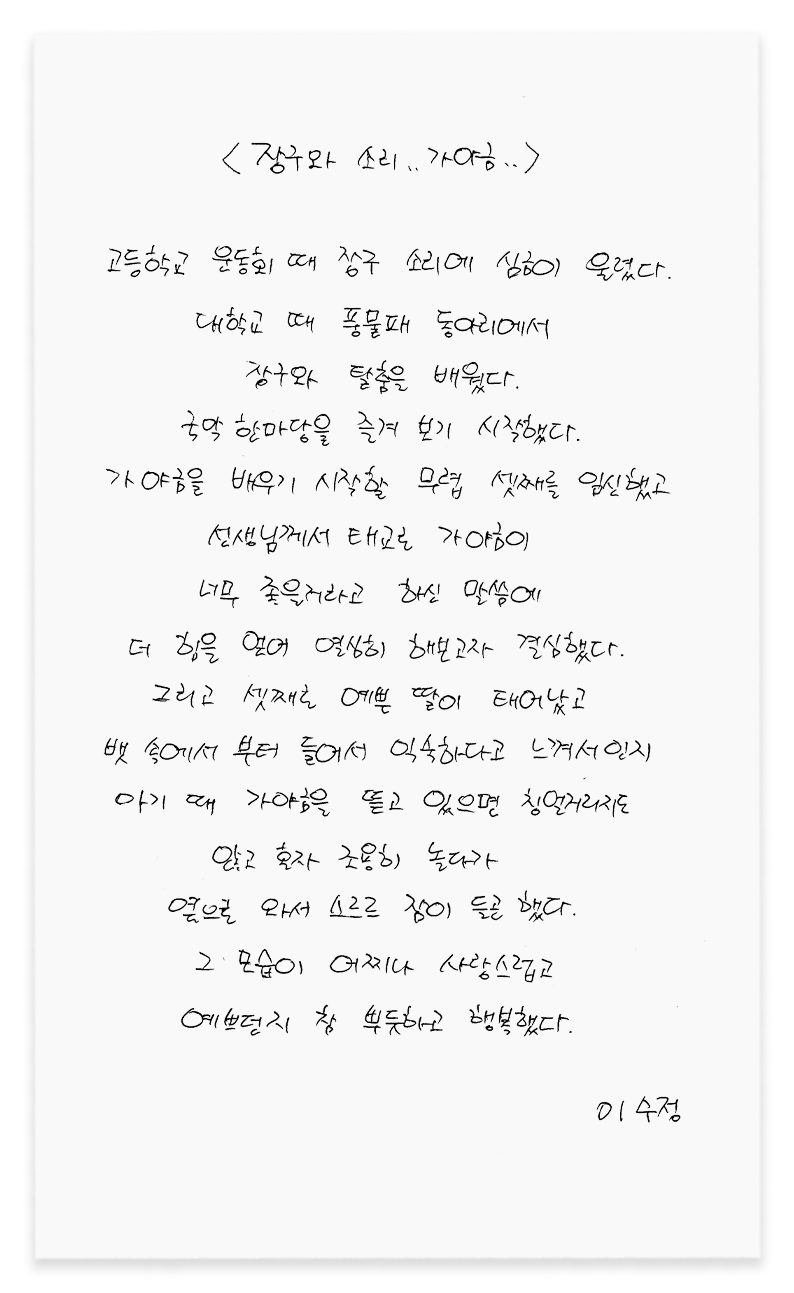 < 장구와 소리.. 가야금.. >
고등학교 운동회 때 장구 소리에 심히이 울렸다.
대학교 때 풍물패 동아리에서
장구와 탈춤을 배웠다.
국악 한마당을 즐겨 보기 시작했다.
가야금을 배우기 시작할 무렵 셋째를 임신했고
선생님께서 태교로 가야금이
너무 좋을거라고 하신 말씀에
더 힘을 얻어 열심히 해보고자 결심했다.
그리고 셋째로 예쁜 딸이 태어났고
뱃 속에서 부터 들어서 익숙하다고 느껴서인지
아기 때 가야금을 뜯고 있으면 칭얼거리지도
않고 혼자 조용히 놀다가
옆으로 와서 스르르 잠이 들곤 했다.
그 모습이 어찌나 사랑스럽고
예쁘던지 참 뿌듯하고 행복했다.
이수정